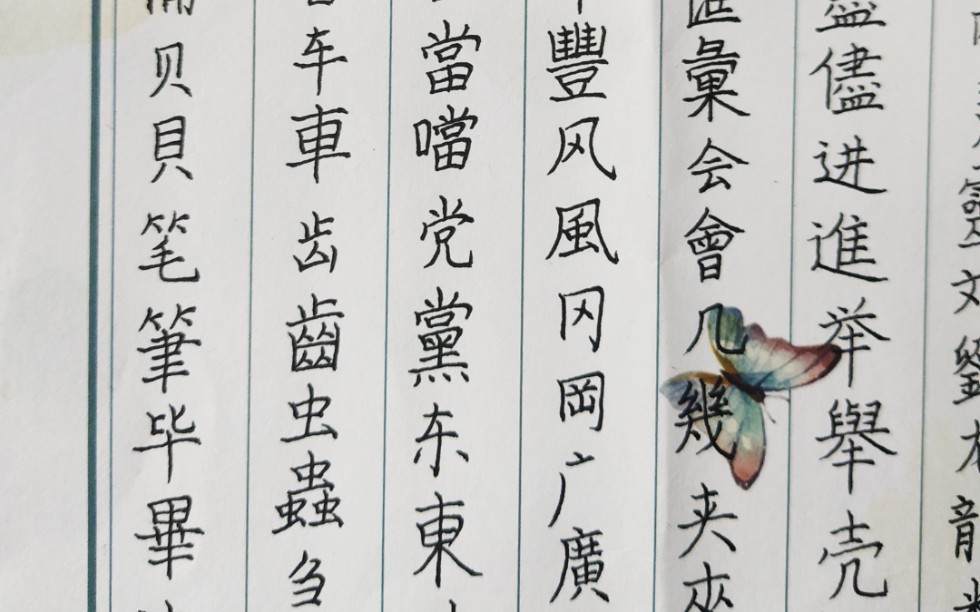 贝貝笔筆毕畢
车車齿齒虫蟲刍
當噹党黨东東
豐风風冈岡广廣
匯彙会會几幾夹夾
盡儘进進举舉壳